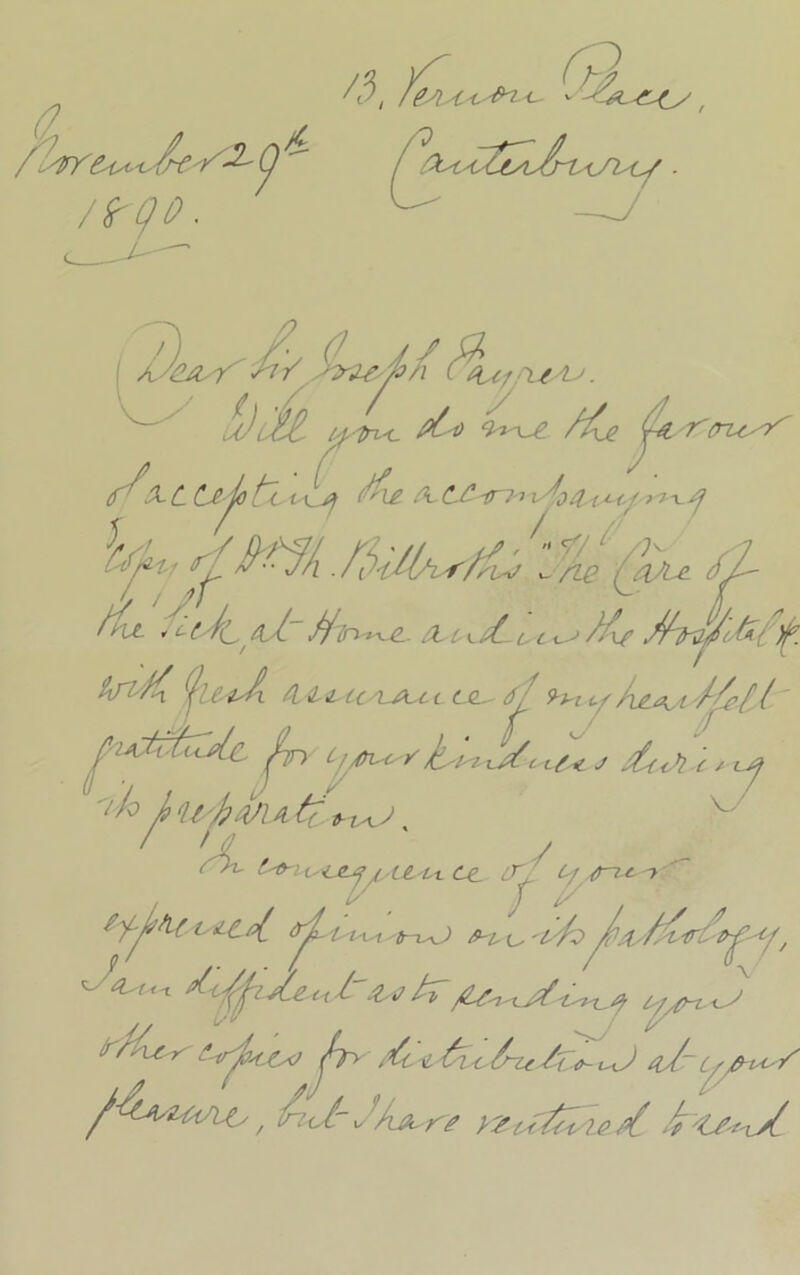 13, Vernon Place,
November 29th Canterbury.
1890.
Dear Sir Joseph Fayrer.
Will you do me the favour
of accepting the accompanying
Copy of Dr Th. Billroth's "The Care of
the Sick, at Home and in the Hospital";
with fresh assurance of my heartfelt
gratitude for your kindness during
its preparation.
In consequence of your
expressed opinion on its pathology,
I am diffident as to sending you
other copies for distribution at your
pleasure, but I have ventured to send